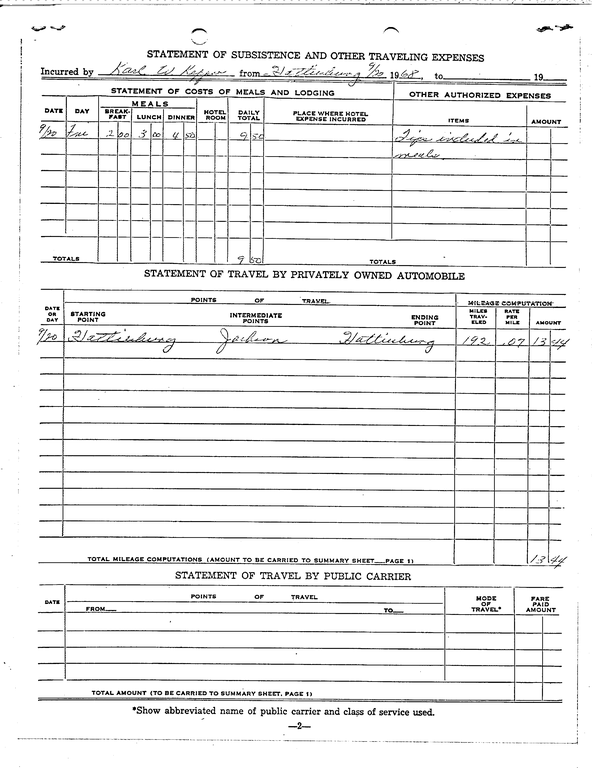 STATEMENT OF SUBSISTENCE AND OTHER TRAVELING EXPENSES
Incurred by Karl W from Hattiesburg 9/20 1968, to 19
STATEMENT OF COSTS OF MEALS AND LODGING OTHER AUTHORIZED EXPENSES
DATE DAY MEALS BREAK-FAST LUNCH DINNER HOTEL ROOM DAILY TOTAL PLACE WHERE HOTEL EXPENSE INCURRED ITEMS AMOUNT
9/20 2 00 3 00 4 50 9 50 Tips included in
meals
TOTALS 9 50 TOTALS
STATEMENT OF TRAVEL BY PRIVATELY OWNED AUTOMOBILE
POINTS OF TRAVEL MILEAGE COMPUTATION
DATE OR DAY STARTING POINT INTERMEDIATE POINTS ENDING POINT MILES TRAV-ELED RATE PER MILE AMOUNT
9/20 Hattiesburg Jackson Hattiesburg 192 .07 13 44
TOTAL MILEAGE COMPUTATIONS (AMOUNT TO BE CARRIED TO SUMMARY SHEET—PAGE 1) 13 44
STATEMENT OF TRAVEL BY PUBLIC CARRIER
DATE POINTS OF TRAVEL MODE OF TRAVEL* FARE PAID AMOUNT
FROM— TO—
TOTAL AMOUNT (TO BE CARRIED TO SUMMARY SHEET, PAGE 1)
*Show abbreviated name of public carrier and class of service used.
—2—